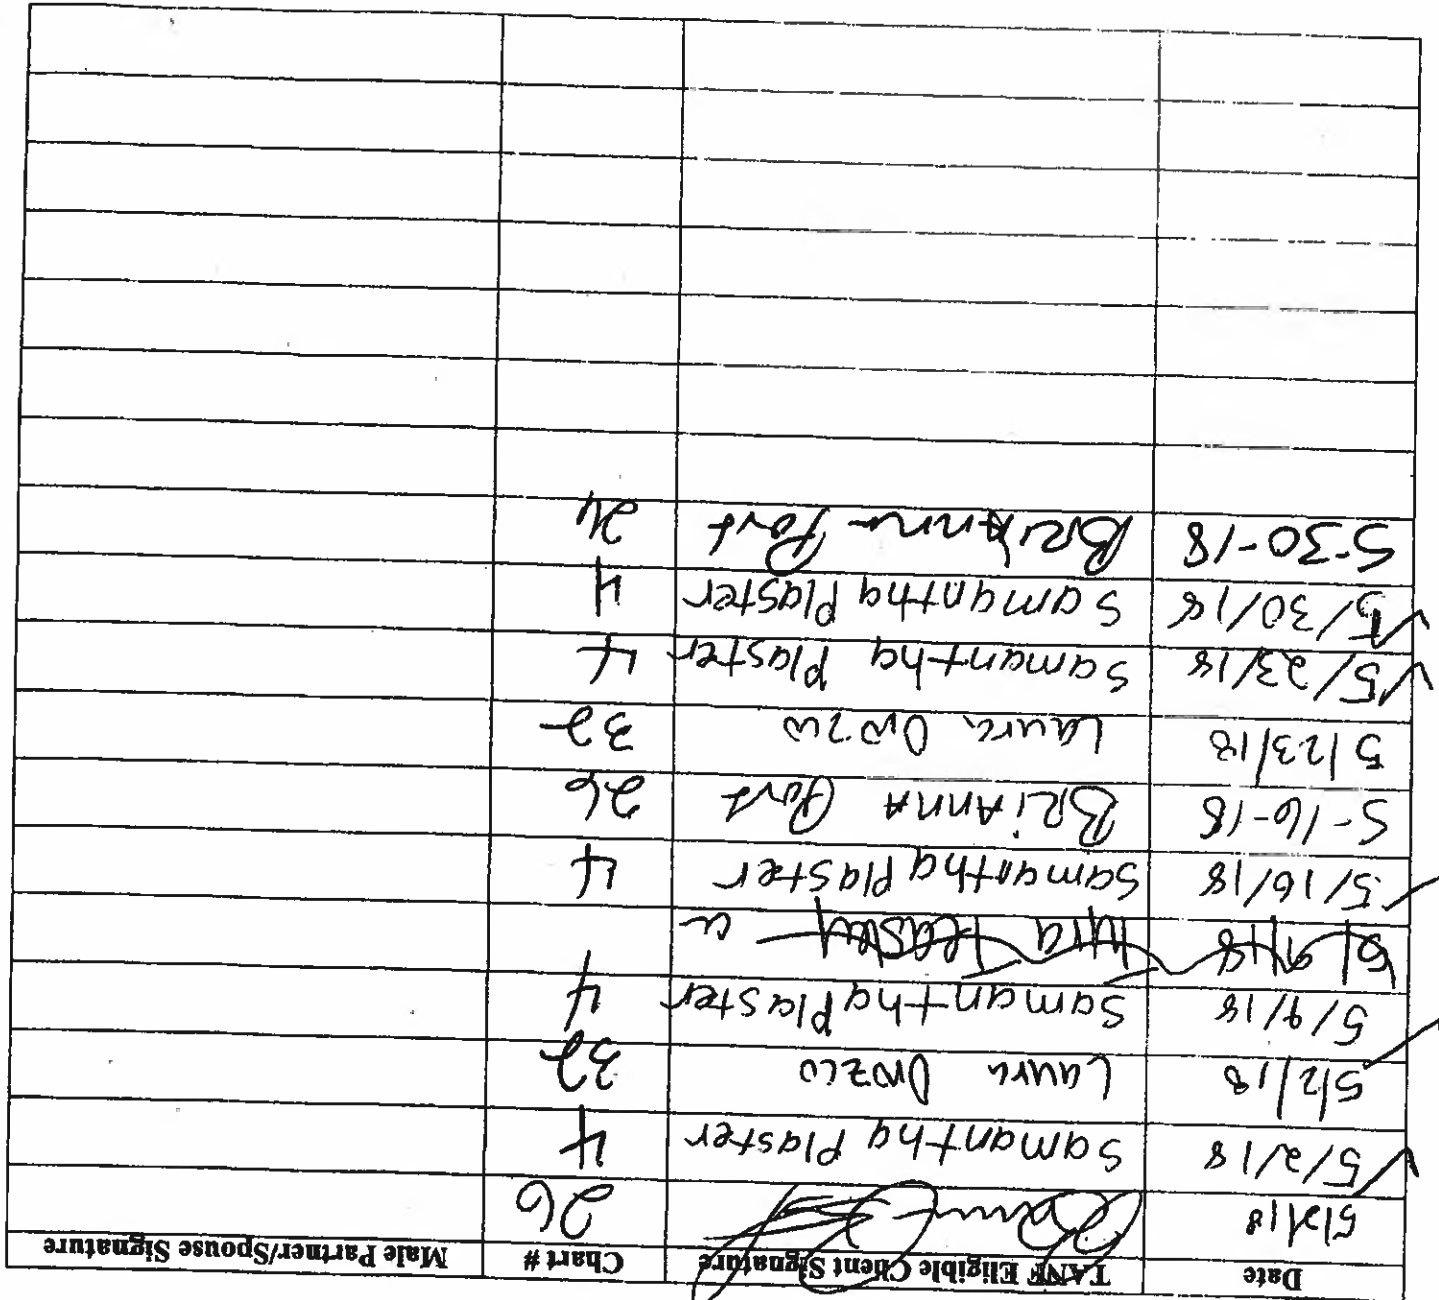 Date TANF Eligible Client Signature Chart # Male Partner/Spouse Signature
5/2/18 26
5/2/18 Samantha Plaster 4
5/2/18 Laura Orozco 32
5/9/18 Samantha Plaster 4
5/9/18
5/16/18 Samantha Plaster 4
5-16-18 BRiAnnA Port 26
5/23/18 Laura Orozco 32
5/23/18 Samantha Plaster 4
5/30/18 Samantha Plaster 4
5-30-18 BRIAnna Port